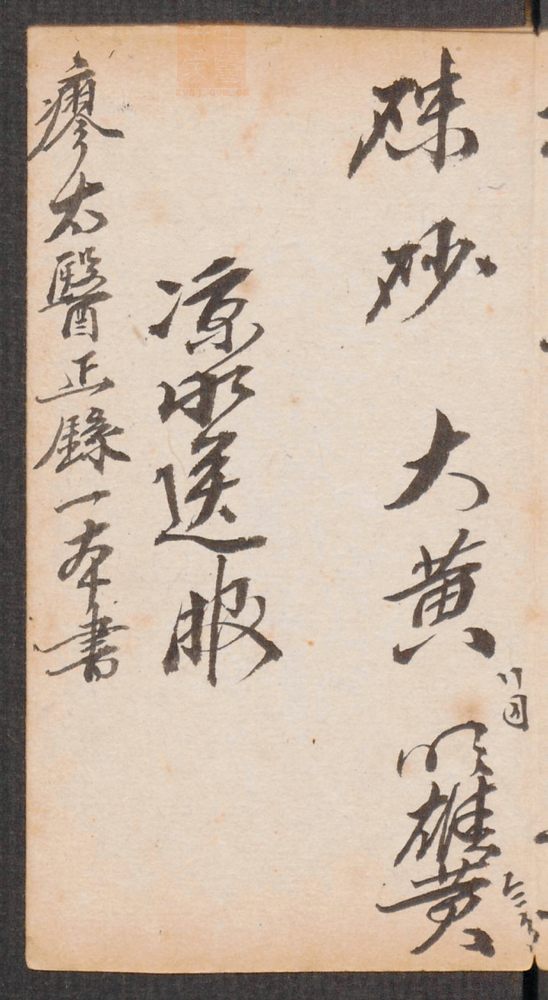 硃砂 大黄 明雄黄
凉水送服
廖右醫正錄一本書